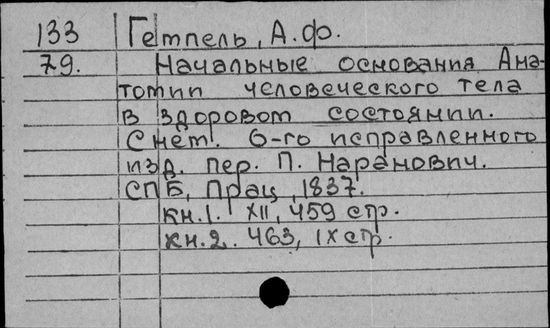 133 Гемпель, А.Ф.
79. Начальные основания Ана-
томии человеческого тела
в здоровом состоянии.
С нем. 6-го исправленного
изд. пер. П. Наранович.
СПБ, Прац, 1837.
кн.1. XII, 459 стр.
кн.2. 463, IX стр.